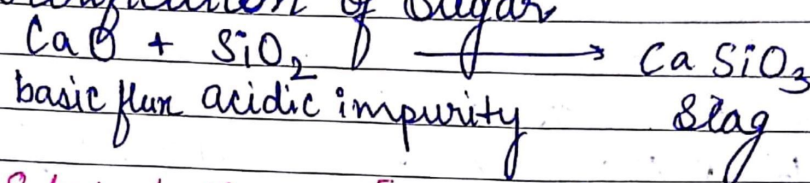 of Sugar
CaO + SiO₂ ⟶ CaSiO₃
basic flux acidic impurity slag